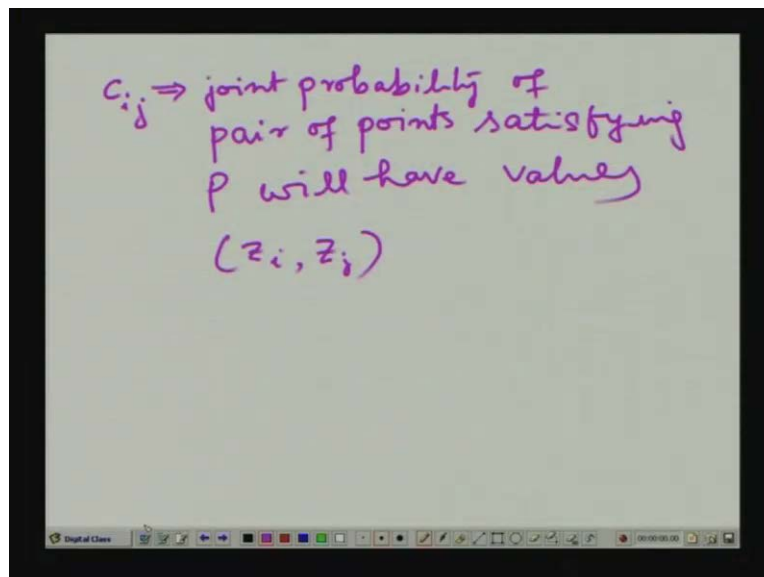 c_ij ⇒ joint probability of
pair of points satisfying
P will have values
(z_i, z_j)
Digital Class
00:00:00.00